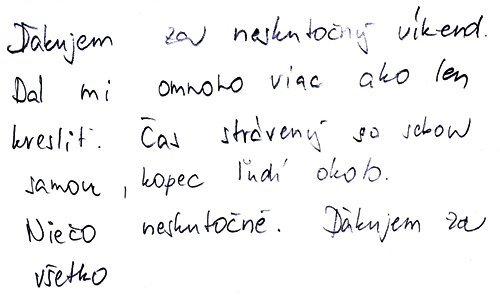 Ďakujem za neskutočný víkend.
Dal mi omnoho viac ako len
kresliť. Čas strávený so sebou
samou, kopec ľudí okolo.
Niečo neskutočné. Ďakujem za
všetko